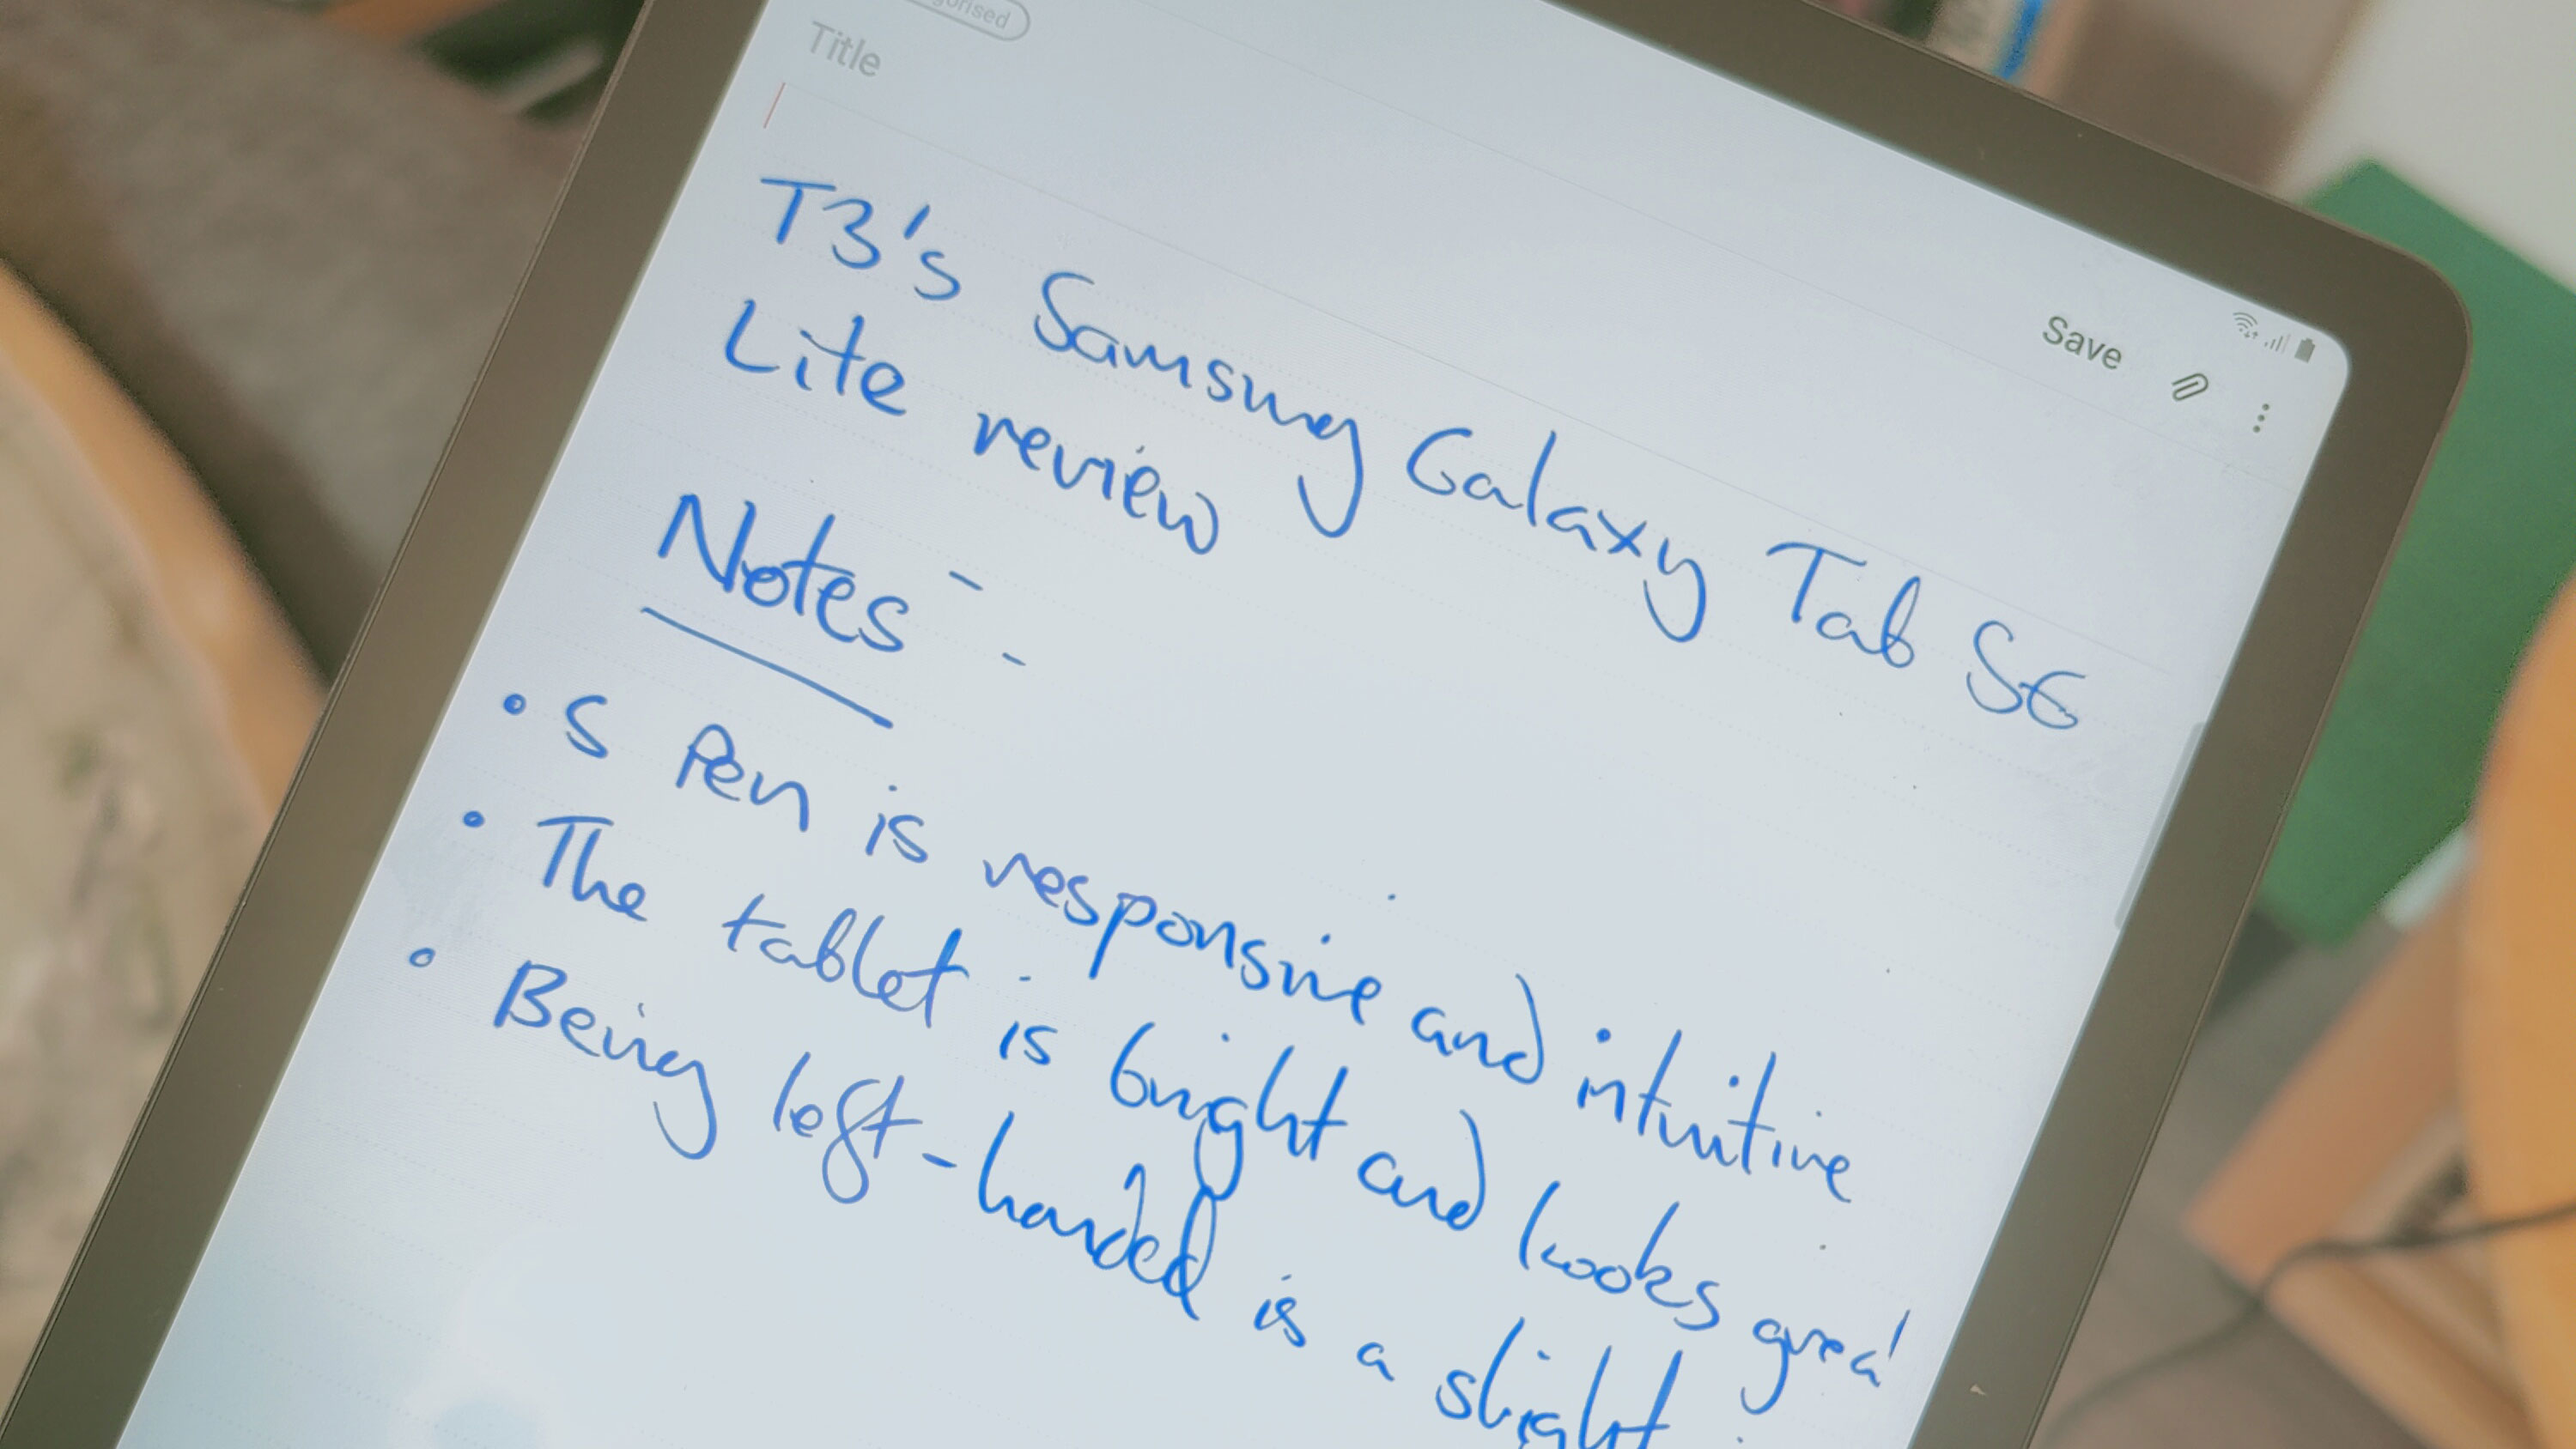 Title
Save
T3's Samsung Galaxy Tab S6
Lite review
Notes -
-
• S Pen is responsive and intuitive
• The tablet is bright and looks grea
• Being left-handed is a slight